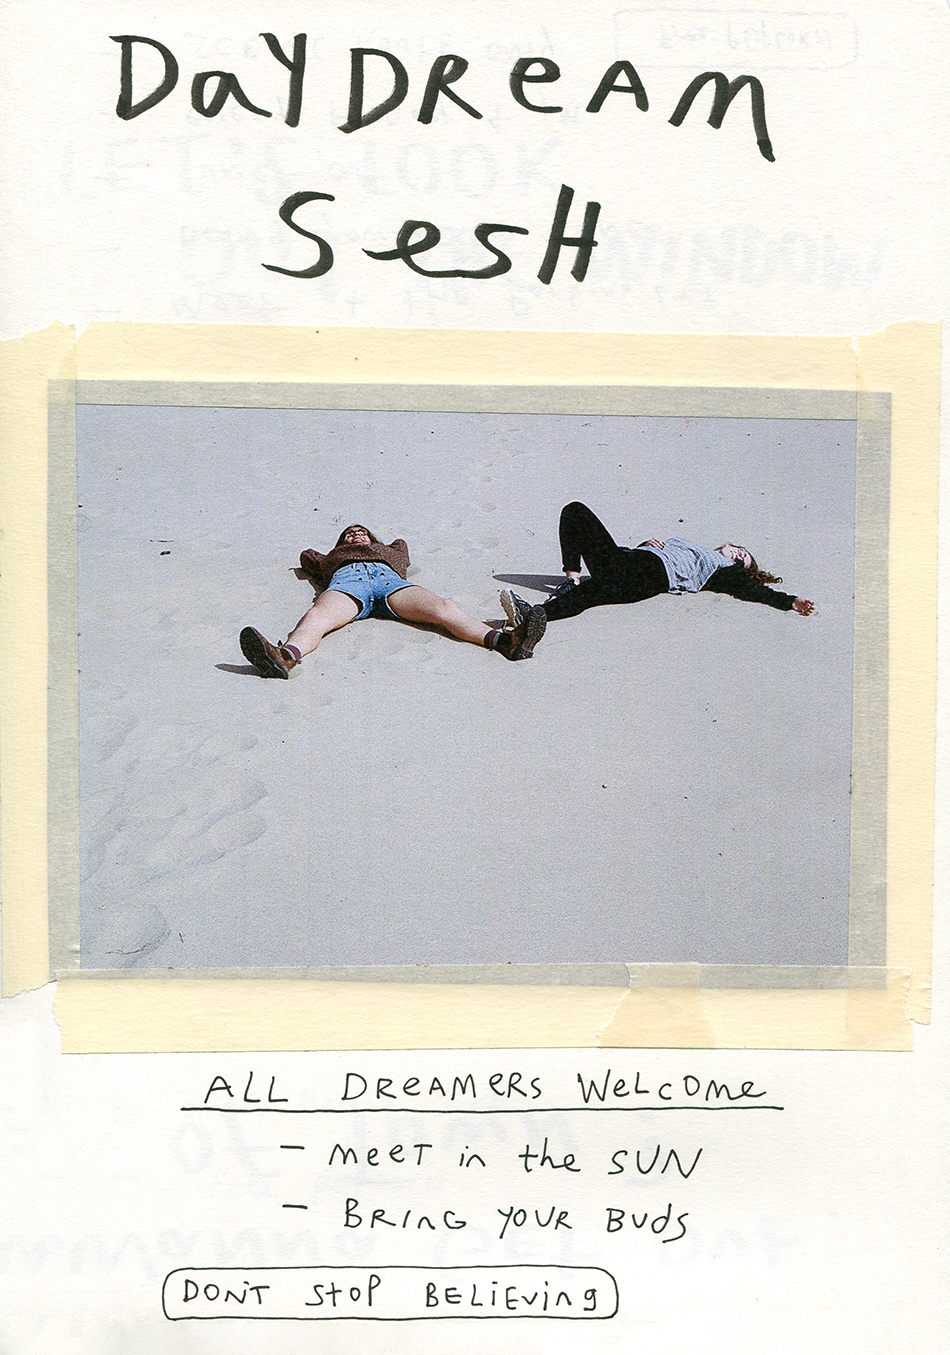 DaYDReAM
SesH
ALL DReAMeRS WeLcOMe
- MeeT in the SUN
- BRinG YOUR BUdS
DONT StoP BELiEving